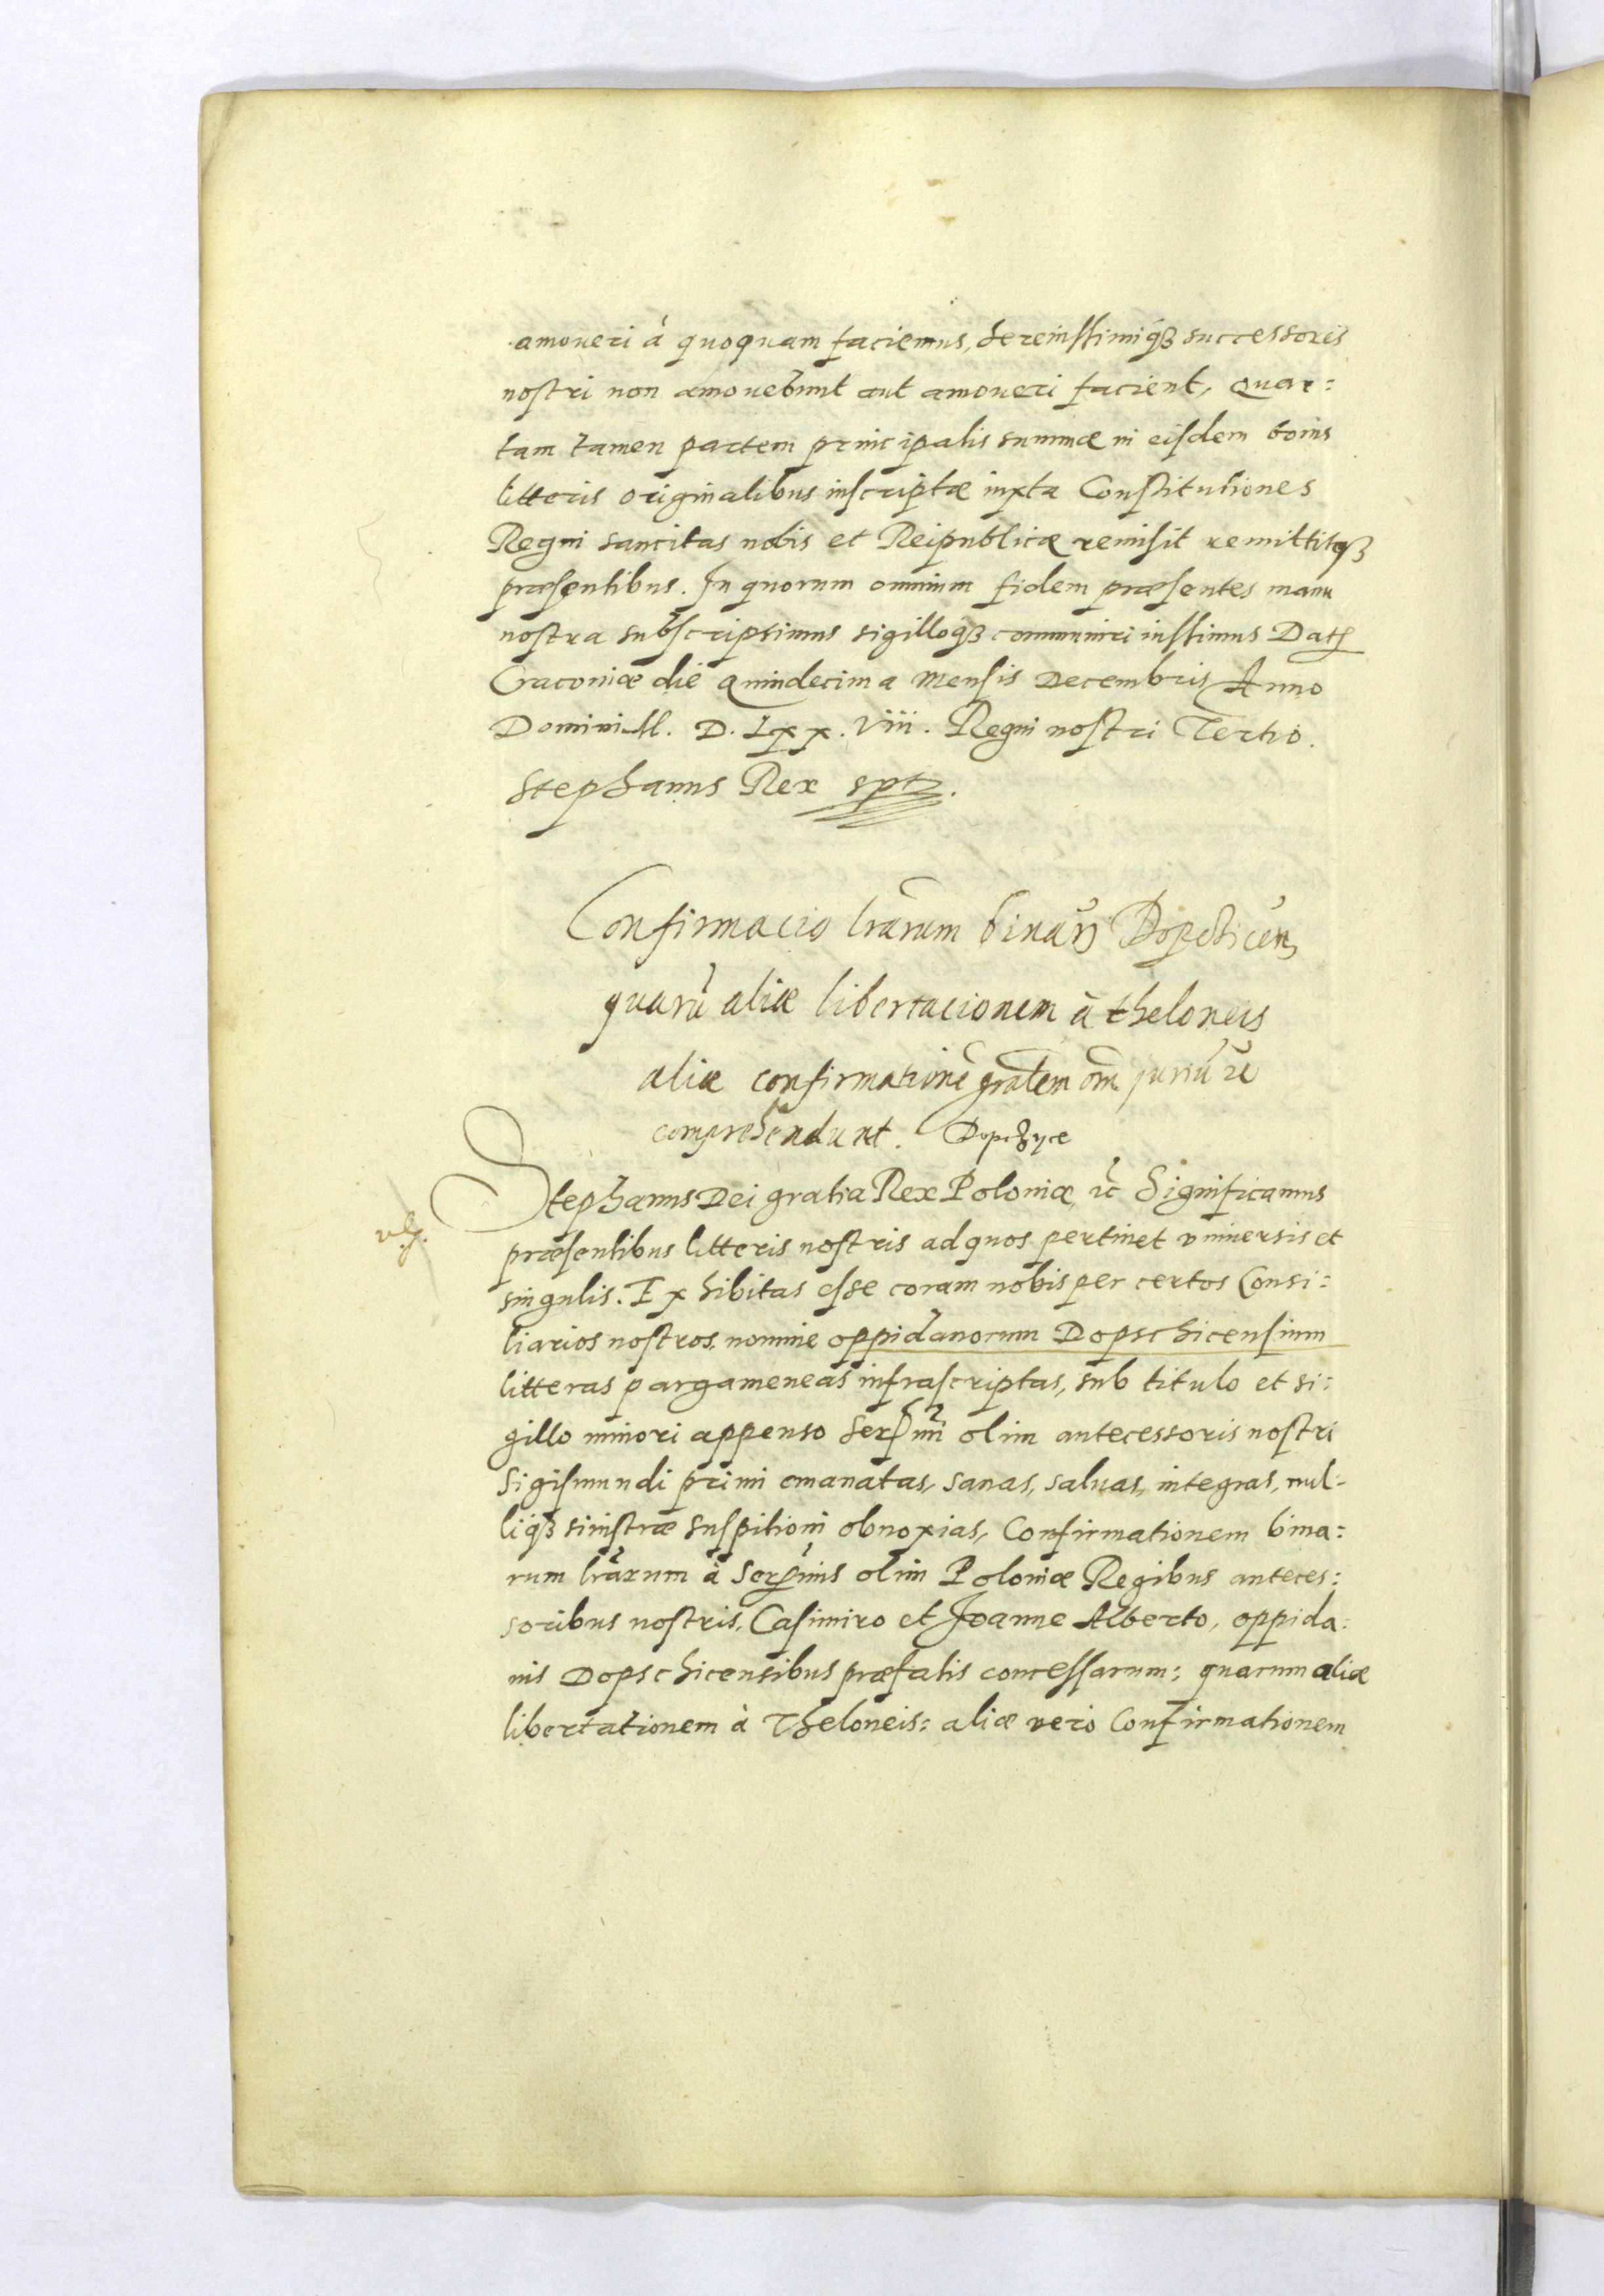 amoueri à quoquam faciemus, Sereniſſimiq́ꝫ successores
noſtri non amouebunt aut amoueri facient, Quar:
tam tamen partem principalis summæ in eiſdem bonis
litteris originalibus inſcriptæ iuxta Conſtitutiones
Regni sancitas nobis et Reipublicæ remiſit remittitqꝫ
præſentibus. In quorum omnium fidem præſentes manu
noſtra subſcripsimus sigilloqꝫ communiri iuſſimus Datꝭ
Cracouiæ die Quindecima Menſis Decembris Anno
Domini M. D. Lxx. Viii. Regni noſtri Tertio.
Stephanus Rex sptꝫ.
Confirmacio lr̃arum binarꝫ Dopchicen̄
quarũ aliæ libertacionem à theloneis
aliæ confirmationẽ gñalem om̃ juriũ ꝛc̃
comprehendunt. Dopczyce
Stephanus Dei gratia Rex Poloniæ ꝛc̃ Significamus
præſentibus litteris noſtris ad quos pertinet vniuersis et
singulis. Exhibitas eſse coram nobis per certos Consi:
liarios noſtros, nomine oppidanorum Dopschicenſium
litteras pargameneas infraſcriptas, sub titulo et si:
gillo minori appenso Serſm̃i olim antecessoris noſtri
Sigiſmundi primi emanatas, sanas, saluas, integras, nul:
liq́ꝫ siniſtræ suſpitioni obnoxias, Confirmationem bina:
rum lr̃arum à Serm̃is olim Poloniæ Regibus anteces:
soribus noſtris, Casimiro et Joanne Alberto, oppida:
nis Dopschicensibus præfatis conceſſarum: quarum aliæ
libertationem à Theloneis: aliæ vero Confirmationem